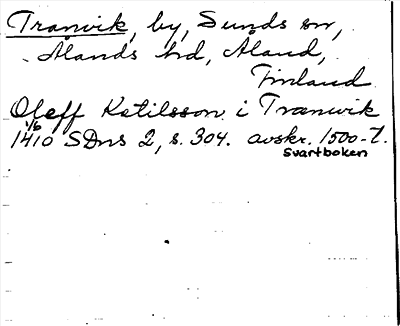 Tranvik, by, Sunds sn,
Ålands hd, Åland,
Finland
Oleff Ketilsson i Tranwik
1/6
1410 SDns 2, s. 304. avskr. 1500-t.
Svartboken